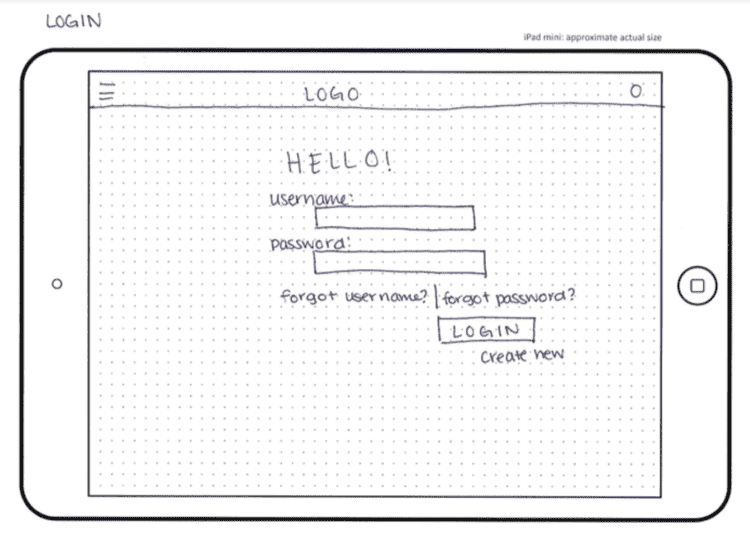 LOGIN
iPad mini: approximate actual size
LOGO
HELLO!
username:
password:
forgot username? | forgot password?
LOGIN
create new